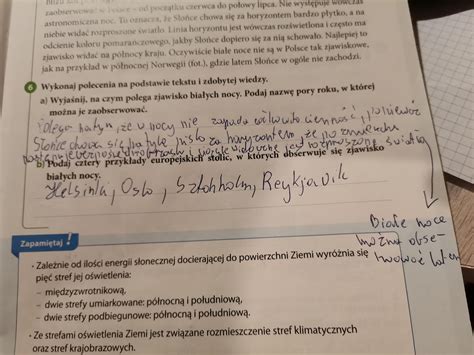 zaobserwować w Polsce – od początku czerwca do połowy lipca. Nie występuje wówczas
astronomiczna noc. To oznacza, że Słońce chowa się za horyzontem bardzo płytko, a na
niebie widać rozproszone światło. Linia horyzontu jest wówczas rozświetlona i często ma
odcienie koloru pomarańczowego, jakby Słońce dopiero się za nią schowało. Najlepiej to
zjawisko widać na północy kraju. Oczywiście białe noce nie są w Polsce tak zjawiskowe,
jak na przykład w północnej Norwegii (fot.), gdzie latem Słońce w ogóle nie zachodzi.
6 Wykonaj polecenia na podstawie tekstu i zdobytej wiedzy.
a) Wyjaśnij, na czym polega zjawisko białych nocy. Podaj nazwę pory roku, w której
można je zaobserwować.
Polega na tym, że w nocy nie zapada całkowita ciemność, ponieważ
Słońce chowa się na tyle nisko za horyzontem, że po zmierzchu
światło
b) Podaj cztery przykłady europejskich stolic, w których obserwuje się zjawisko
białych nocy.
Helsinki, Oslo, Sztokholm, Reykjavik
Białe noce
można obse-
rwować latem
Zapamiętaj!
• Zależnie od ilości energii słonecznej docierającej do powierzchni Ziemi wyróżnia się
pięć stref jej oświetlenia:
– międzyzwrotnikową,
– dwie strefy umiarkowane: północną i południową,
– dwie strefy podbiegunowe: północną i południową.
• Ze strefami oświetlenia Ziemi jest związane rozmieszczenie stref klimatycznych
oraz stref krajobrazowych.